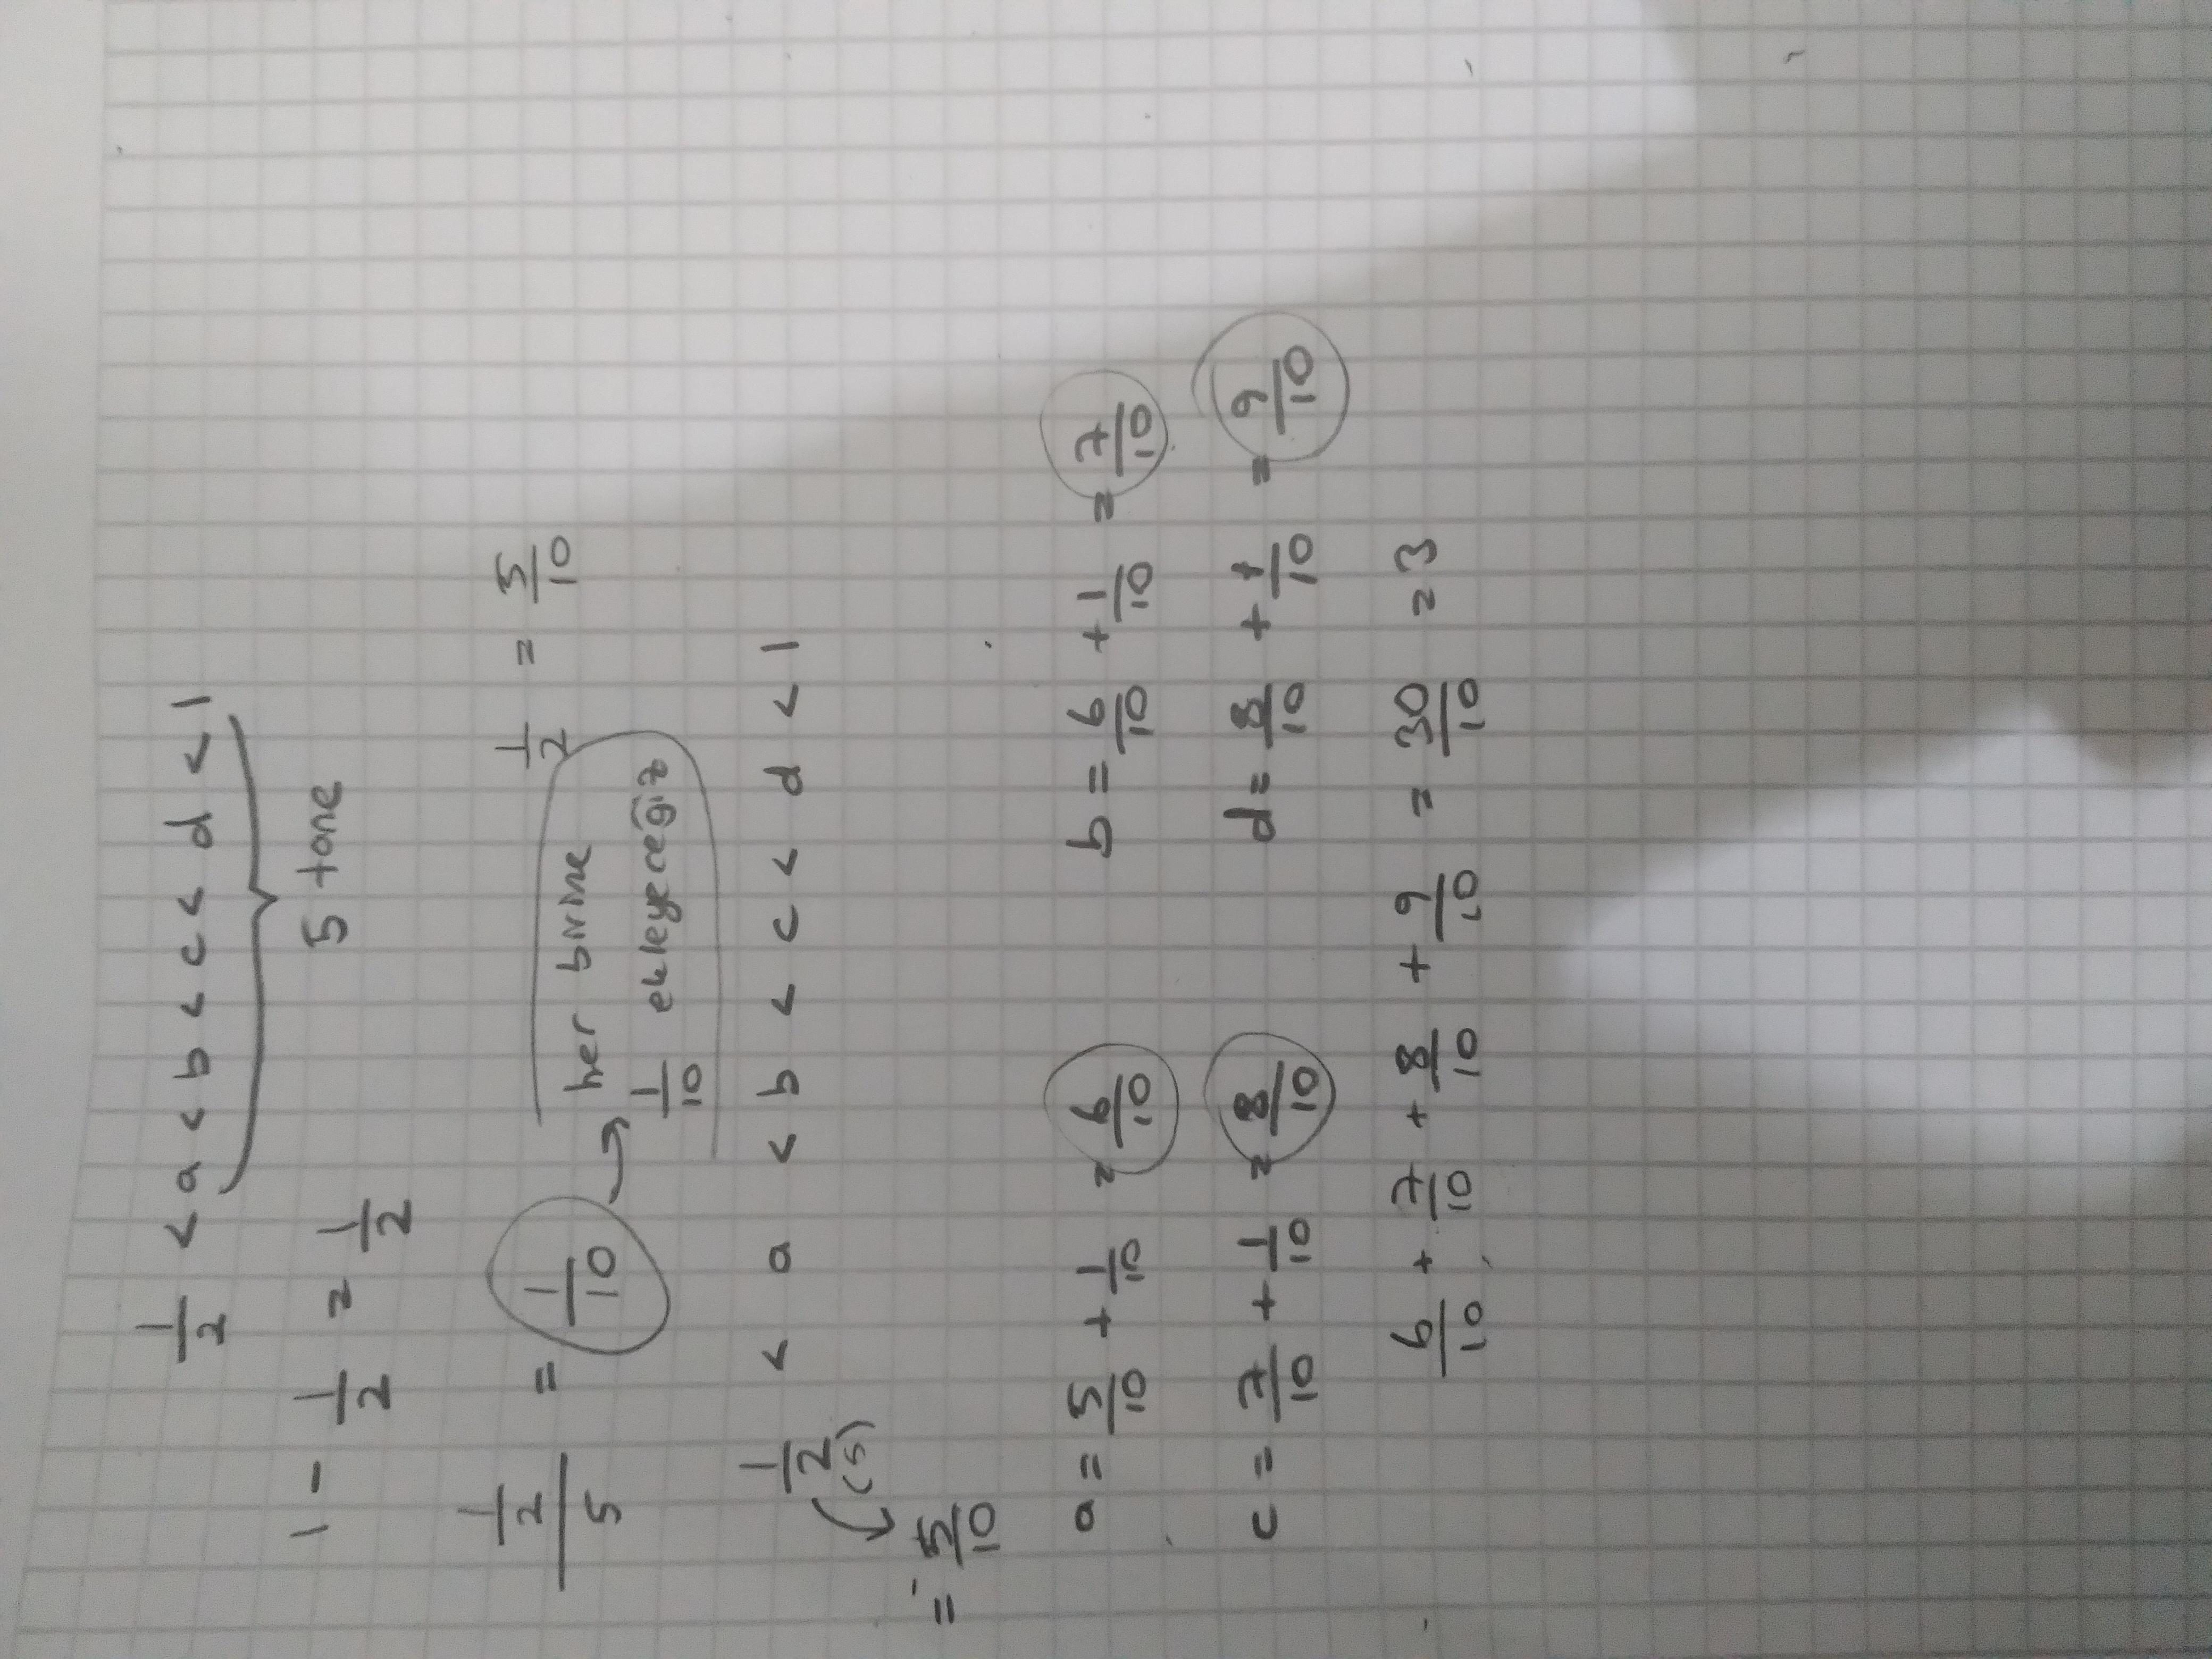 1/2 < a < b < c < d < 1
5 tane
1 - 1/2 = 1/2
1/2 / 5 = 1/10 → her birine 1/2 = 5/10
1/10 ekleyeceğiz
1/2 < a < b < c < d < 1
(5)
= 5/10
a = 5/10 + 1/10 = 6/10 b = 6/10 + 1/10 = 7/10
c = 7/10 + 1/10 = 8/10 d = 8/10 + 1/10 = 9/10
6/10 + 7/10 + 8/10 + 9/10 = 30/10 = 3